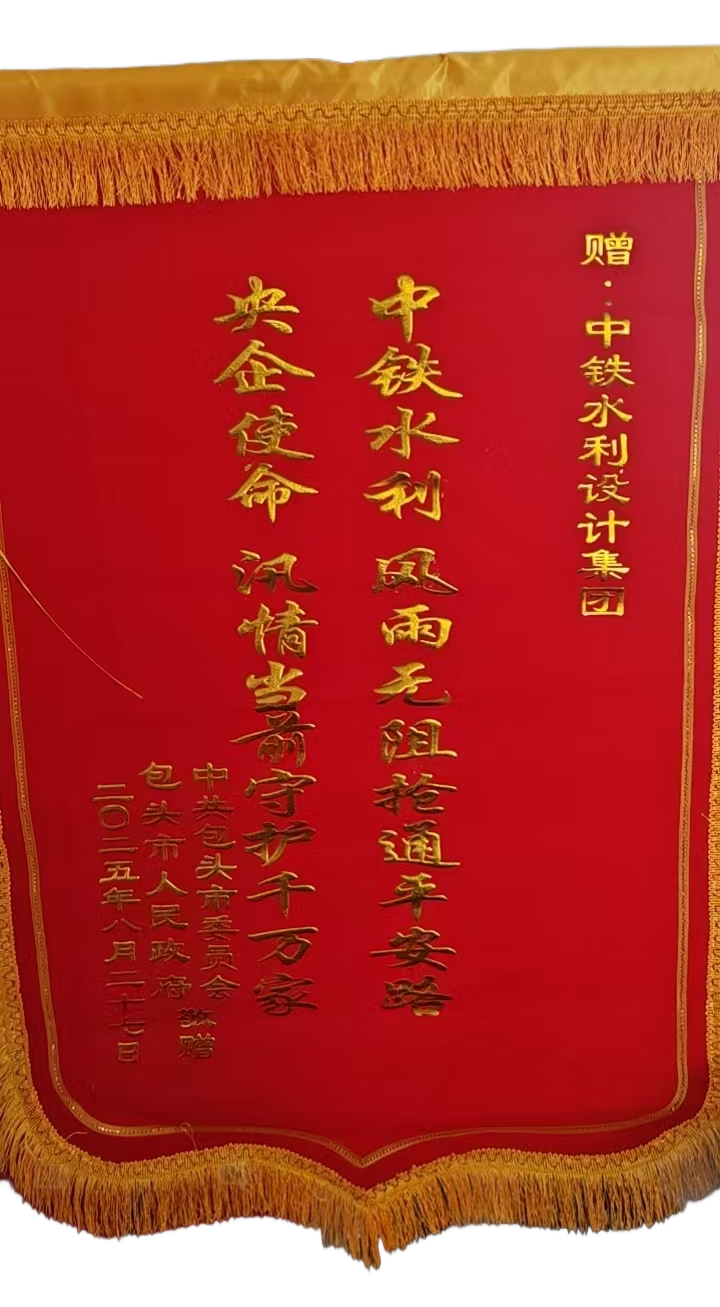 赠：中铁水利设计集团
中铁水利 风雨无阻抢通平安路
央企使命 汛情当前守护千万家
中共包头市委员会
包头市人民政府
敬赠
二〇二五年八月二十七日